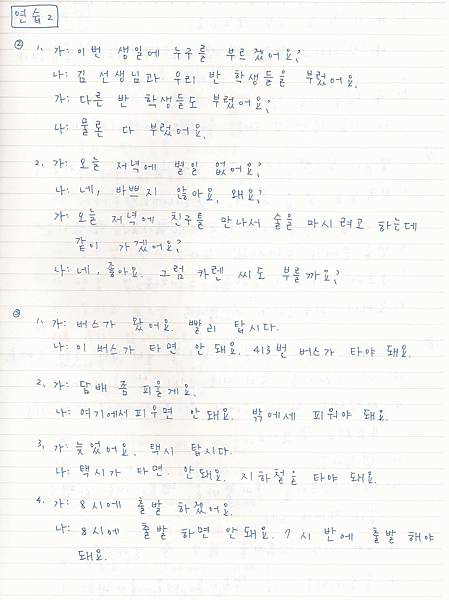 연습 2
② 1. 가: 이번 생일에 누구를 부르겠어요?
나: 김 선생님과 우리 반 학생들을 부렀어요.
가: 다른 반 학생들도 부렀어요?
나: 물론 다 부렀어요.
2. 가: 오늘 저녁에 별일 없어요?
나: 네, 바쁘지 않아요, 왜요?
가: 오늘 저녁에 친구를 만나서 술을 마시려고 하는데
같이 가겠어요?
나: 네, 좋아요. 그럼 카렌 씨도 부를까요?
③ 1. 가: 버스가 왔어요. 빨리 탑시다.
나: 이 버스가 타면 안 돼요. 413번 버스가 타야 돼요.
2. 가: 담배 좀 피울게요.
나: 여기에서 피우면 안 돼요. 밖에세 피워야 돼요.
3. 가: 늦었어요. 택시 탑시다.
나: 택시가 타면 안 돼요. 지하철을 타야 돼요.
4. 가: 8시에 출발 하겠어요.
나: 8시에 출발 하면 안 돼요. 7시 반에 출발 해야
돼요.